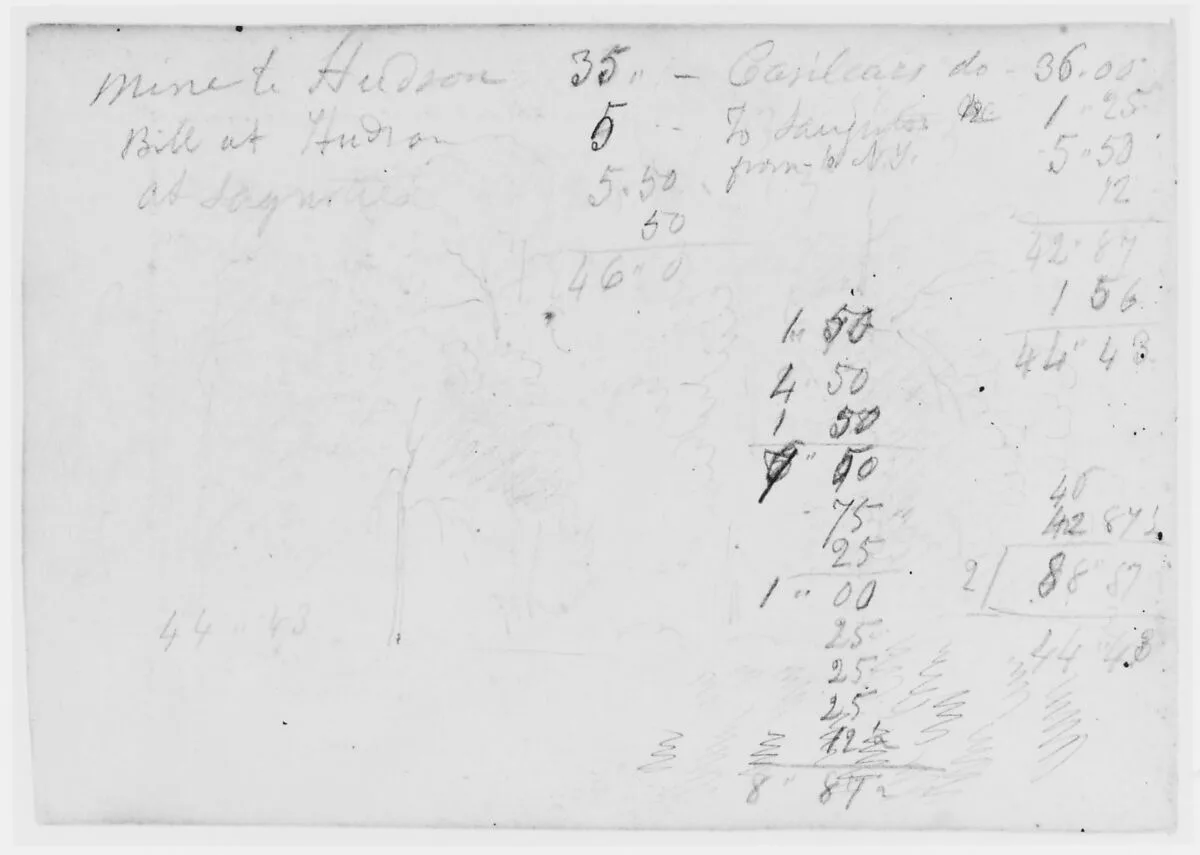 Mine to Hudson 35 " - Casilears do - 36.00
Bill at Hudson 5 - To Saugerties 1 " 25
at Saguties 5.50 from to N.Y. 5 " 50
50 12
46 " 0 42 " 87
1 56
44 " 43
1 " 50
4 " 50
1 50
" 50
75 "
25
1 " 00
25
25
25
12½
8 " 87½
45
42 87½
2 88 " 87
44 " 43
44 " 43